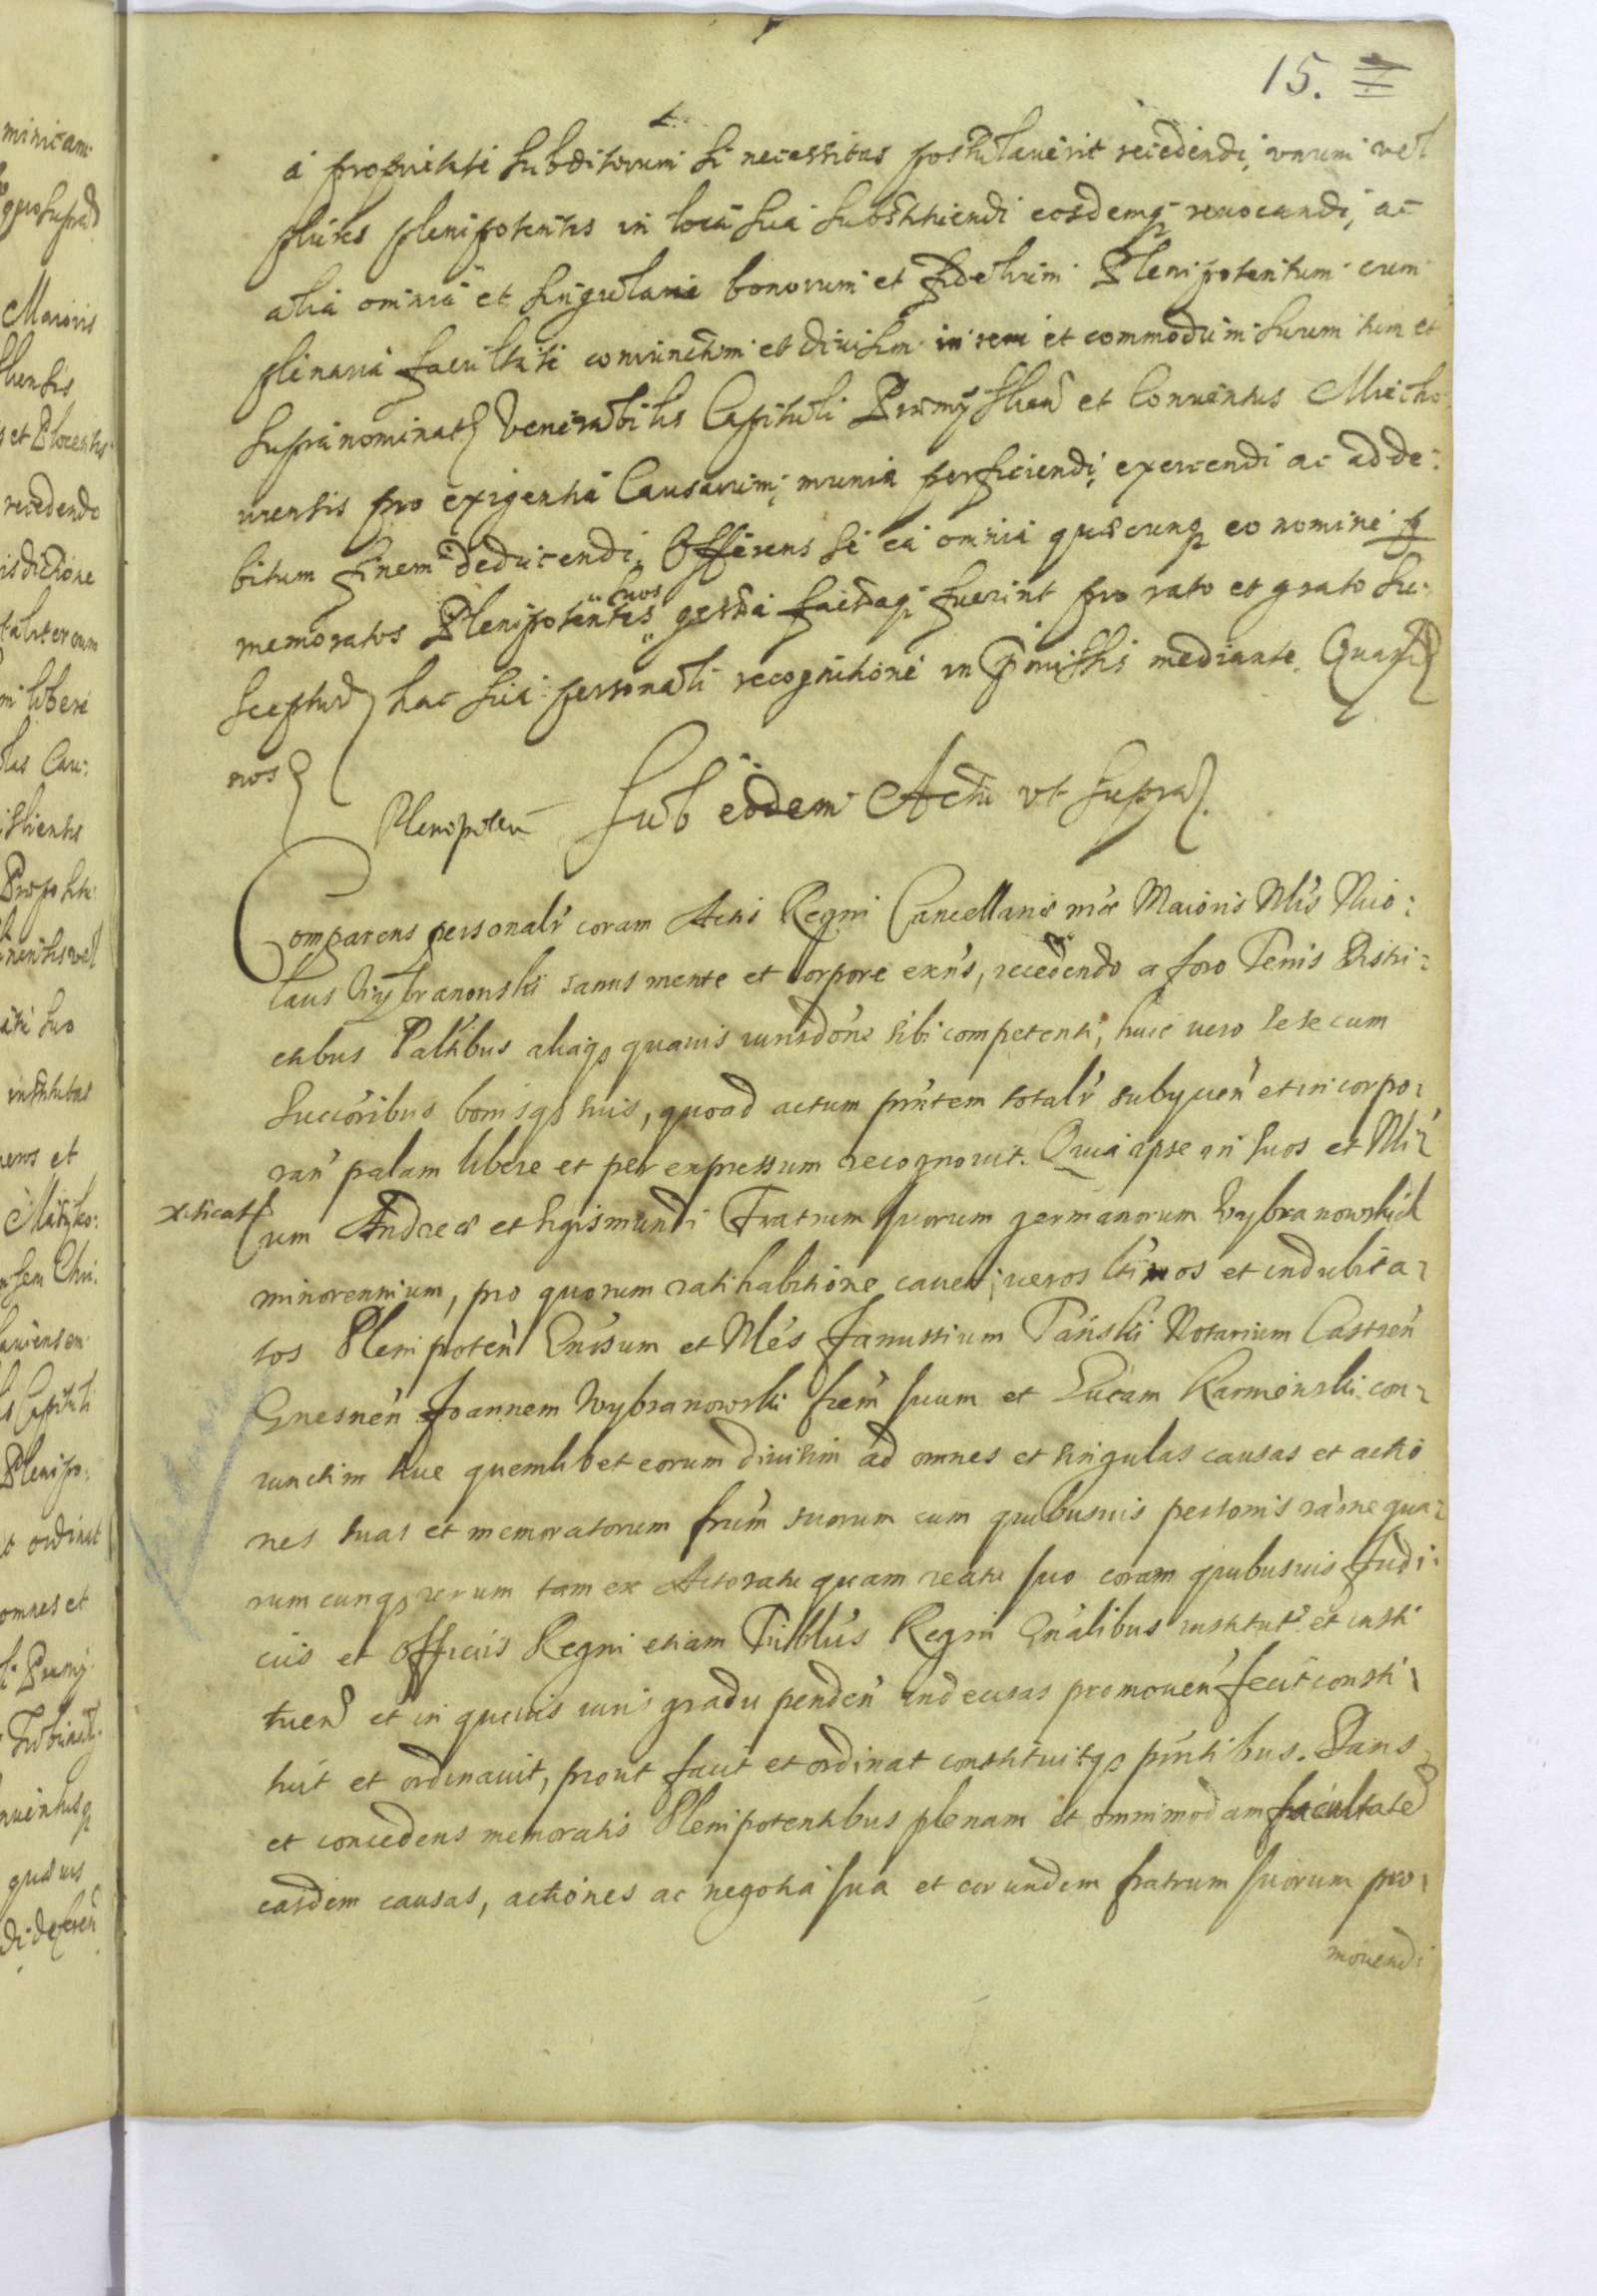 15.
à proprietate subditorum si necessitas postulauerit recedendi, vnum vel
plures plenipotentes in locũ sui substituendi eosdemq; reuocandi, ac
alia omnia et singularia bonorum et fidelium Plenipotentum cum
plenaria facultate coniunctim et diuisim in rem et commodum suum tum et
supranominat Venerabilis Capituli Præmysliens et Conuentus Miecho
uiensis pro exigentia Causarum, munia perficiendi, exercendi ac ad de:
bitum finem deducendi. Offerens se ea omnia quæcunq; eo nomine p
memoratos Plenipotentes suos gesta factaq; fuerint pro rato et grato su:
sceptur hac sua personali recognitione in præmissis mediante. Quas
nos
Plenipoten Sub eodem Actu vt supra.
Comparens personalr coram Actis Regni Cancellariæ mrs Maioris Mls Nico:
laus Wybranowski sanus mente et corpore exns, recedendo a foro Terris Distri:
ctibus Paltibus aliaqs quauis iurisdone sibi competenti, huic vero sese cum
succoribus bonisqs suis, quoad actum pntem totalr subycien et incorpo:
ran palam libere et per expressum recognouit. Quia ipse in suos et Mli
um Andreæ et Sigismundi Fratrum suorum germanorum Wybranowskich
minorennium, pro quorum ratihabitione cauet, veros ltimos et indubita:
tos Plenipoten Gnrsum et Mles Janussium Tański Notarium Castren
Gnesnen Joannem Wybranowski frem suum et Lucam Karminski con:
iunctim siue quemlibet eorum diuisim ad omnes et singulas causas et actio
nes suas et memoratorum frum suorum cum quibusuis personis raone qua:
rumcunqs rerum tam ex Actoratu quam reatu suo coram quibusuis Judi:
ciis et Officiis Regni etiam Triblus Regni Gnalibus institut et insti
tuen et in quouis iuris gradu penden indecisas promouen fecit consti
tuit et ordinauit, prout facit et ordinat constituitqs pntibus. Dans
et concedens memoratis Plenipotentibus plenam et omnimodam facultate
easdem causas, actiones ac negotia sua et eorundem fratrum suorum pro:
mouendi